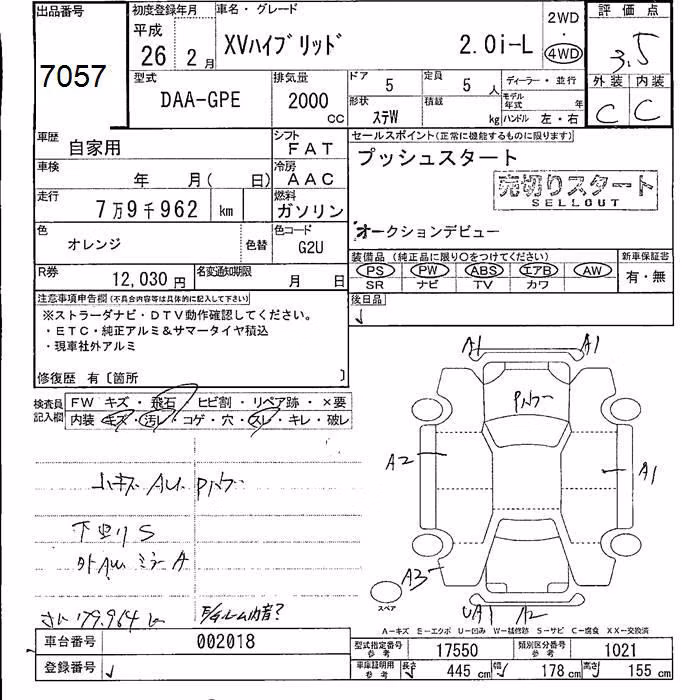 出品番号
7057
初度登録年月
平成
26年 2月
車名・グレード
XVハイブリッド 2.0i-L
2WD
・
4WD
評価点
3.5
外装 内装
C C
型式
DAA-GPE
排気量
2000
CC
ドア 5
定員 5人
ディーラー・並行
形状 ステW
積載 kg
モデル年式 年
ハンドル 左・右
車歴
自家用
シフト
FAT
車検
年 月( 日)
冷房
AAC
走行
7万9千962 km
燃料
ガソリン
色
オレンジ
色替
色コード
G2U
R券
12,030円
名変通知期限
月 日
セールスポイント(正常に機能するものに限ります)
プッシュスタート
売切りスタート
SELLOUT
オークションデビュー
装備品(純正品に限り○をつけてください)
PS PW ABS エアB AW
SR ナビ TV カワ
新車保証書
有・無
後日品
注意事項申告欄(不具合内容等は具体的に記入して下さい)
※ストラーダナビ・DTV動作確認してください。
・ETC・純正アルミ&サマータイヤ積込
・現車社外アルミ
修復歴 有〔箇所 〕
検査員記入欄
FW キズ・飛石 ヒビ割・リペア跡・×要
内装 キズ・汚レ・コゲ・穴・スレ・キレ・破レ
小キズ AW
下廻りS
外AW ミラーA
A1 A1
A2
A1
A3
UA1 A2
スペア
A-キズ E-エクボ U-凹み W-補修跡 S-サビ C-腐食 XX-交換済
車台番号
002018
登録番号
型式指定番号
参考
17550
類別区分番号
参考
1021
車庫証明用
参考
長さ 445 cm
幅 178 cm
高さ 155 cm